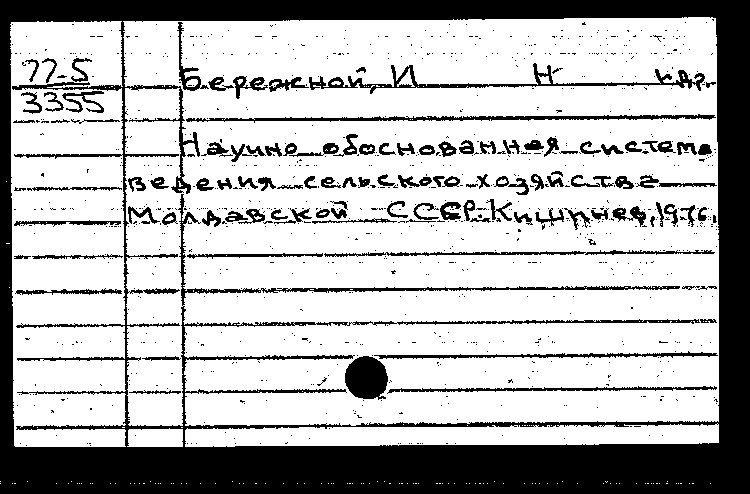 77-5
3355
Бережной, И Н и др.
Научно обоснованная система
ведения сельского хозяйства
Молдавской ССР. Кишинев, 1976.